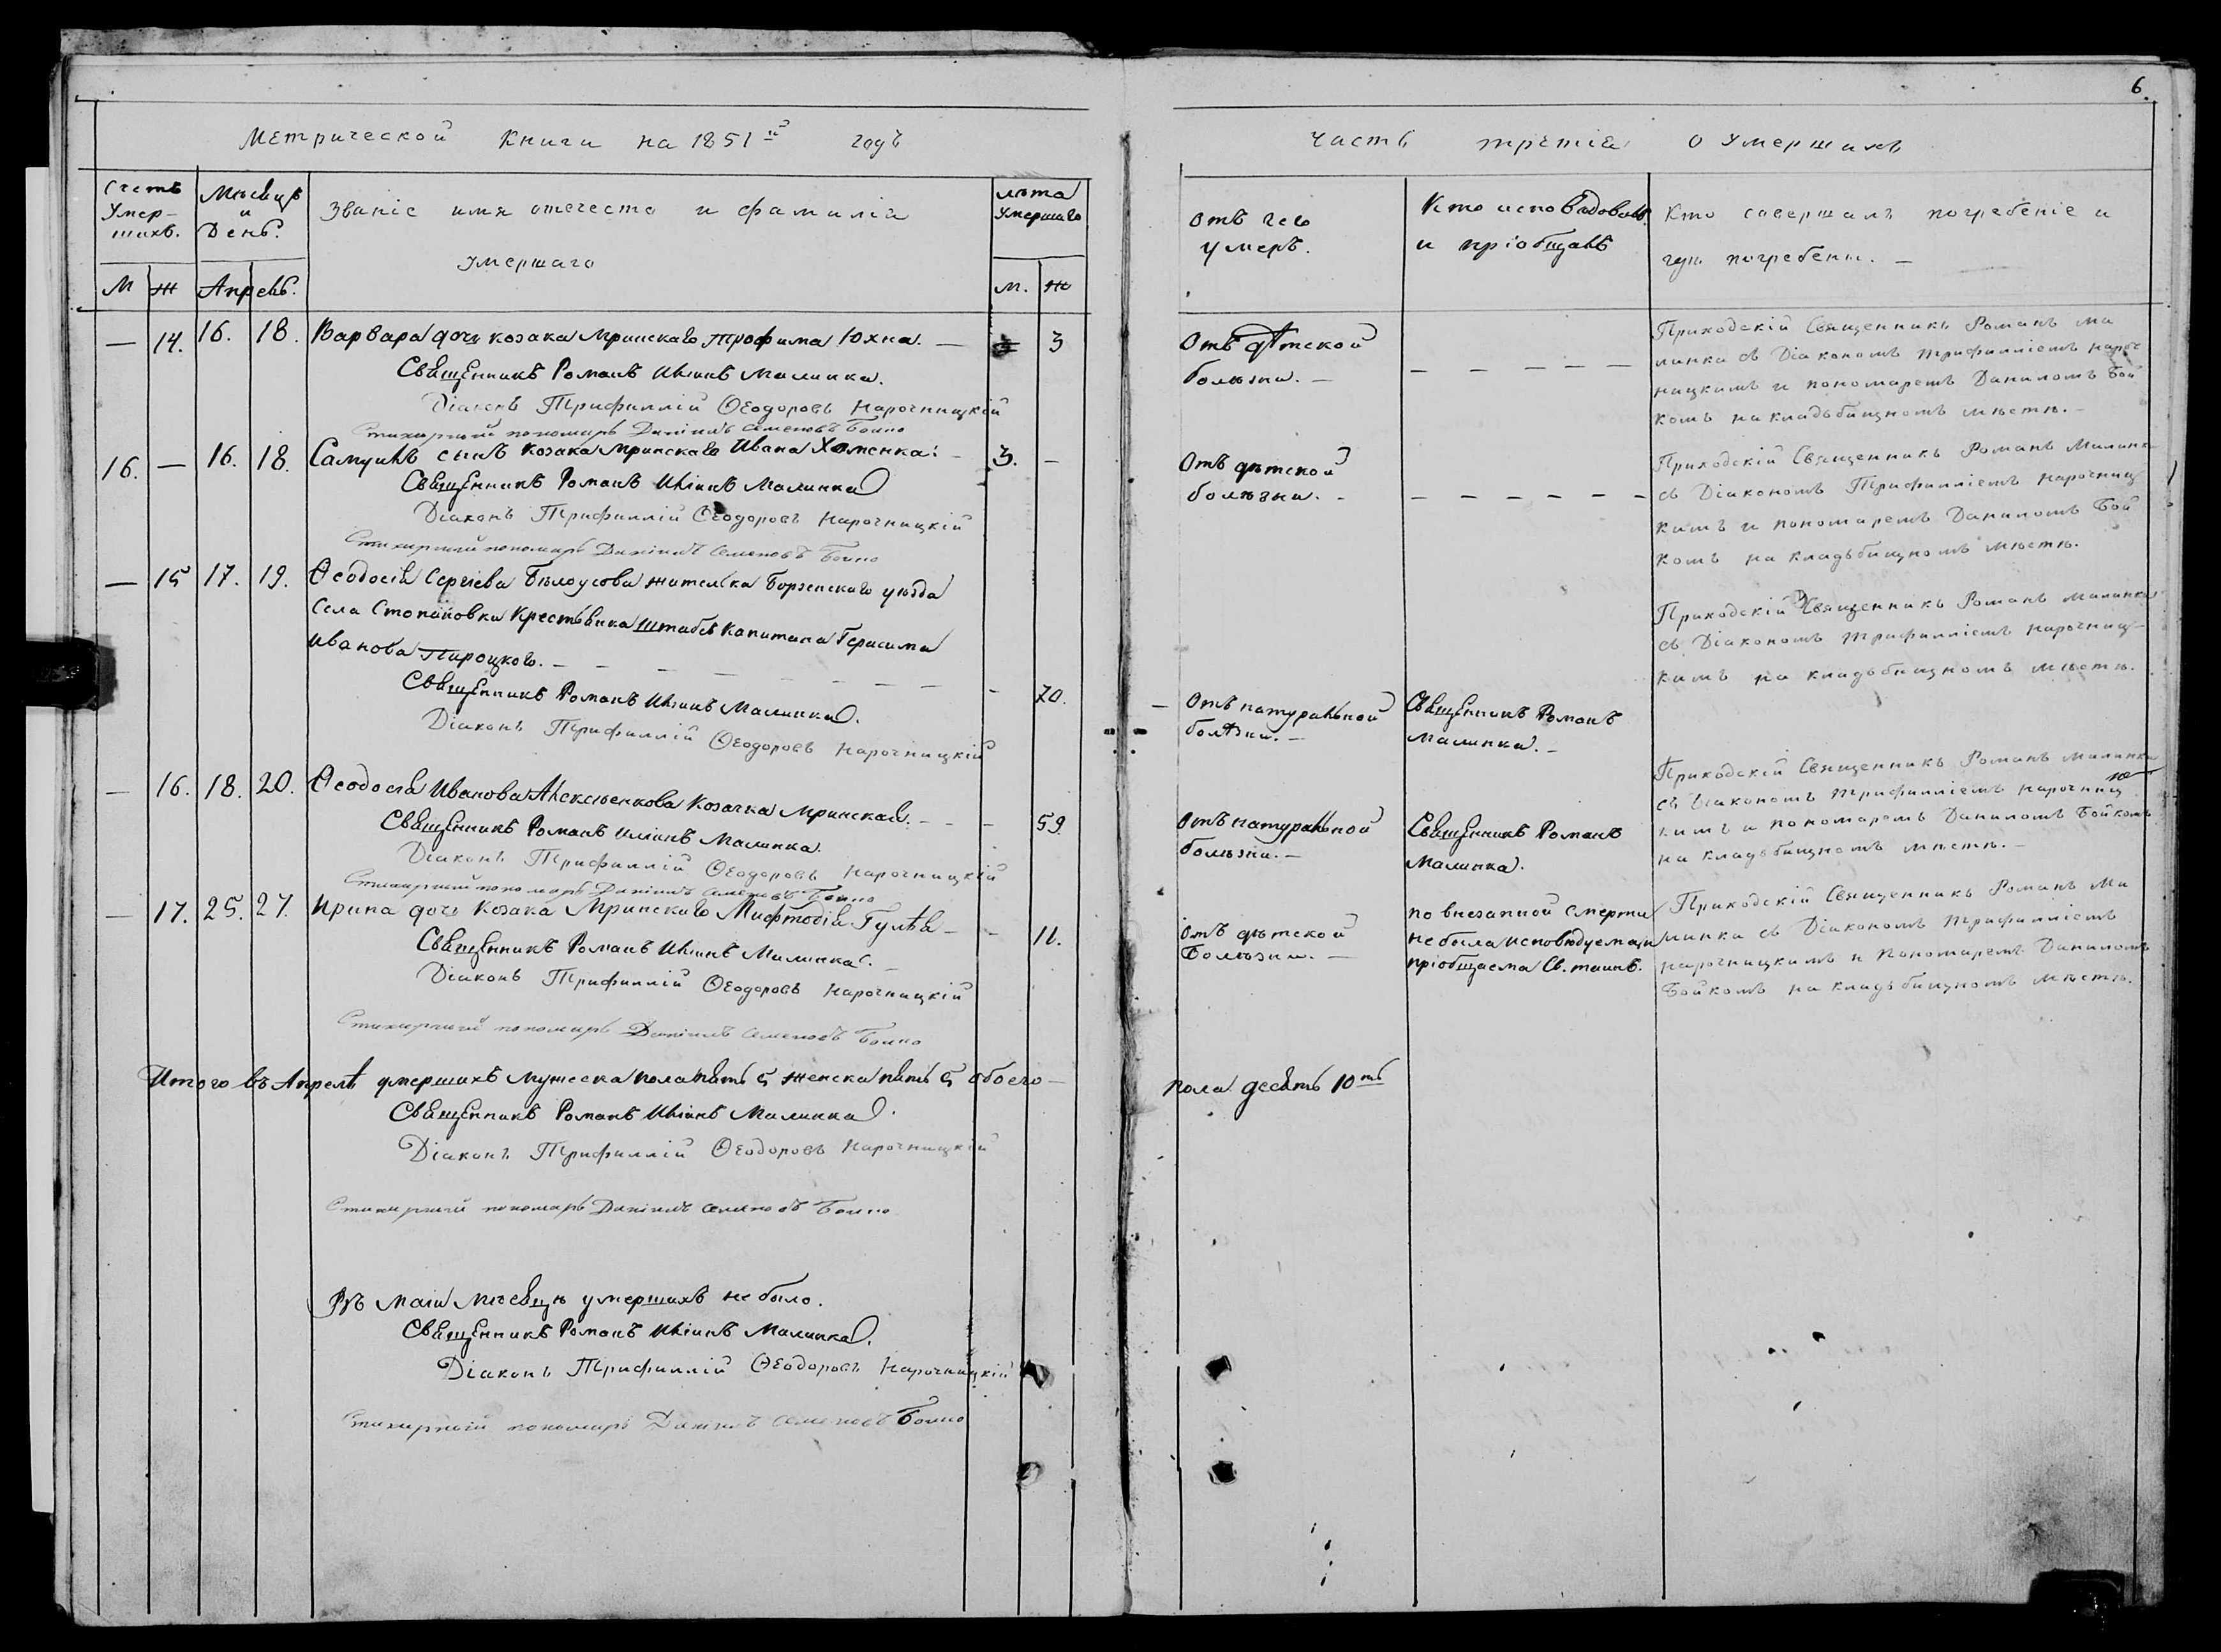 6.
Метрической Книги на 1851й годъ
Часть третія о умершихъ
Счетъ Умер-шихъ.
Мѣсяцъ и День.
Званіе имя отечество и фамилія
умершаго
лѣта умершаго
Отъ чего умеръ.
Кто исповѣдовалъ и пріобщалъ
Кто совершалъ погребеніе и
гдѣ погребены. —
М Ж Апрель. М. Ж
— 14. 16. 18. Варвара дочь козака Мринскаго Трофима Юхна. — 3
Священникъ Романъ Иліинъ Малинка.
Діаконъ Трифиллій Ѳеодоровъ Нарочницкій
Стихирный пономарь Даніилъ Семеновъ Бойко
Отъ дѣтской
болѣзни. —
— — — — —
Приходскій Священникъ Романъ Ма
линка съ Діакономъ Трифилліемъ Нароч
ницкимъ и пономаремъ Даниломъ Бой
комъ на кладьбищномъ мѣстѣ. —
16. — 16. 18. Самуилъ сынъ козака Мринскаго Ивана Хоменка: — 3. —
Священникъ Романъ Иліинъ Малинка
Діаконъ Трифиллій Ѳеодоровъ Нарочницкій
Стихирный пономарь Даніилъ Семеновъ Бойко
Отъ дѣтской
болѣзни. —
— — — — — —
Приходскій Священникъ Романъ Малинка
съ Діакономъ Трифилліемъ Нарочниц
кимъ и пономаремъ Даниломъ Бой
комъ на кладьбищномъ мѣстѣ.
— 15 17. 19. Ѳеодосія Сергіева Бѣлоусова жителька Борзенскаго уѣзда
Села Стопановки Крестьянка штабсъ Капитана Герасима
Иванова Пироцкого. — — — — — — —
Священникъ Романъ Иліинъ Малинка. — 70.
Діаконъ Трифиллій Ѳеодоровъ Нарочницкій
— Отъ натуральной
болѣзни. —
Священникъ Романъ
Малинка. —
Приходскій Священникъ Романъ Малинка
съ Діакономъ Трифилліемъ Нарочниц-
кимъ на кладьбищномъ мѣстѣ.
— 16. 18. 20. Ѳеодосія Иванова Алексѣенкова Козачка Мринская. — — — 59.
Священникъ Романъ Иліинъ Малинка.
Діаконъ Трифиллій Ѳеодоровъ Нарочницкій
Стихирный пономарь Даніилъ Семеновъ Бойко
Отъ натуральной
болѣзни. —
Священникъ Романъ
Малинка.
Приходскій Священникъ Романъ Малинка
съ Діакономъ Трифилліемъ Нарочниц
кимъ и пономаремъ Даниломъ Бойкомъ
на кладьбищномъ мѣстѣ. —
— 17. 25. 27. Ирина дочь Козака Мринскаго Гулѣя — — 11.
Священникъ Романъ Иліинъ Малинка.
Діаконъ Трифиллій Ѳеодоровъ Нарочницкій
Стихирный пономарь Даніилъ Семеновъ Бойко
Отъ дѣтской
Болѣзни. —
по внезапной смерти
не была исповѣдуема и
пріобщаема Св. таинъ.
Приходскій Священникъ Романъ Ма
линка съ Діакономъ Трифилліемъ
Нарочницкимъ и Пономаремъ Даниломъ
Бойкомъ на кладьбищномъ мѣстѣ.
Итого въ Апрелѣ умершихъ мужеска пола пять 5 женска пять 5 обоего — пола десять 10ть
Священникъ Романъ Иліинъ Малинка.
Діаконъ Трифиллій Ѳеодоровъ Нарочницкій
Стихирный пономарь Даніилъ Семеновъ Бойко
Въ Маіи Мѣсяцѣ умершихъ не было.
Священникъ Романъ Иліинъ Малинка.
Діаконъ Трифиллій Ѳеодоровъ Нарочницкій
Стихирный пономарь Даніилъ Семеновъ Бойко